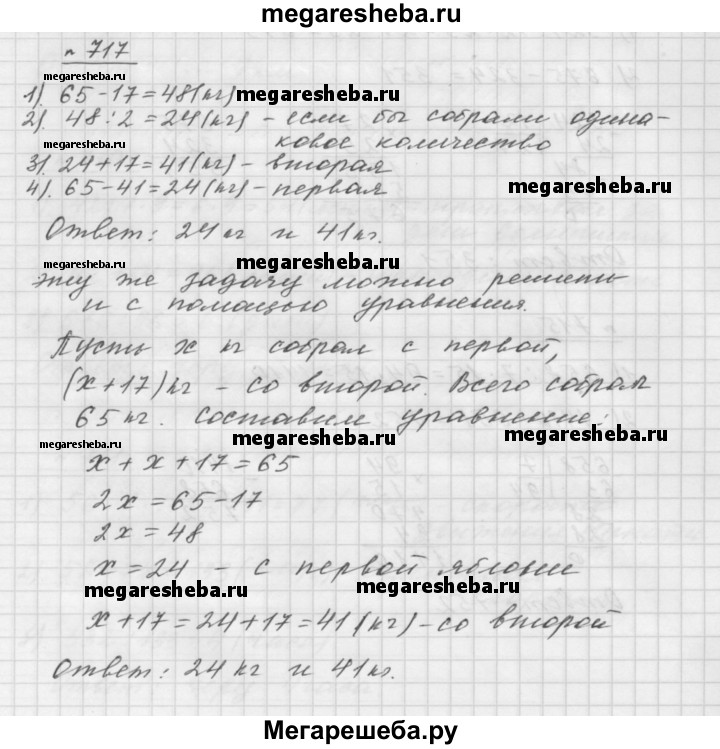 megaresheba.ru
n 717
megaresheba.ru
1). 65-17=48(кг) megaresheba.ru
2). 48:2=24(кг) - если бы собрали одина-
ковое количество
3). 24+17=41(кг) - вторая
megaresheba.ru
4). 65-41=24(кг) - первая
Ответ: 24 кг и 41 кг.
megaresheba.ru megaresheba.ru
эту же задачу можно решить
и с помощью уравнения.
megaresheba.ru
Пусть x кг собрал с первой,
(x+17) кг - со второй. Всего собрал
65 кг. Составим уравнение:
megaresheba.ru megaresheba.ru megaresheba.ru
x + x + 17 = 65
2x = 65-17
2x = 48
x = 24 - с первой яблони
megaresheba.ru megaresheba.ru
x+17 = 24+17 = 41(кг) - со второй
Ответ: 24 кг и 41 кг.
Мегарешеба.ру